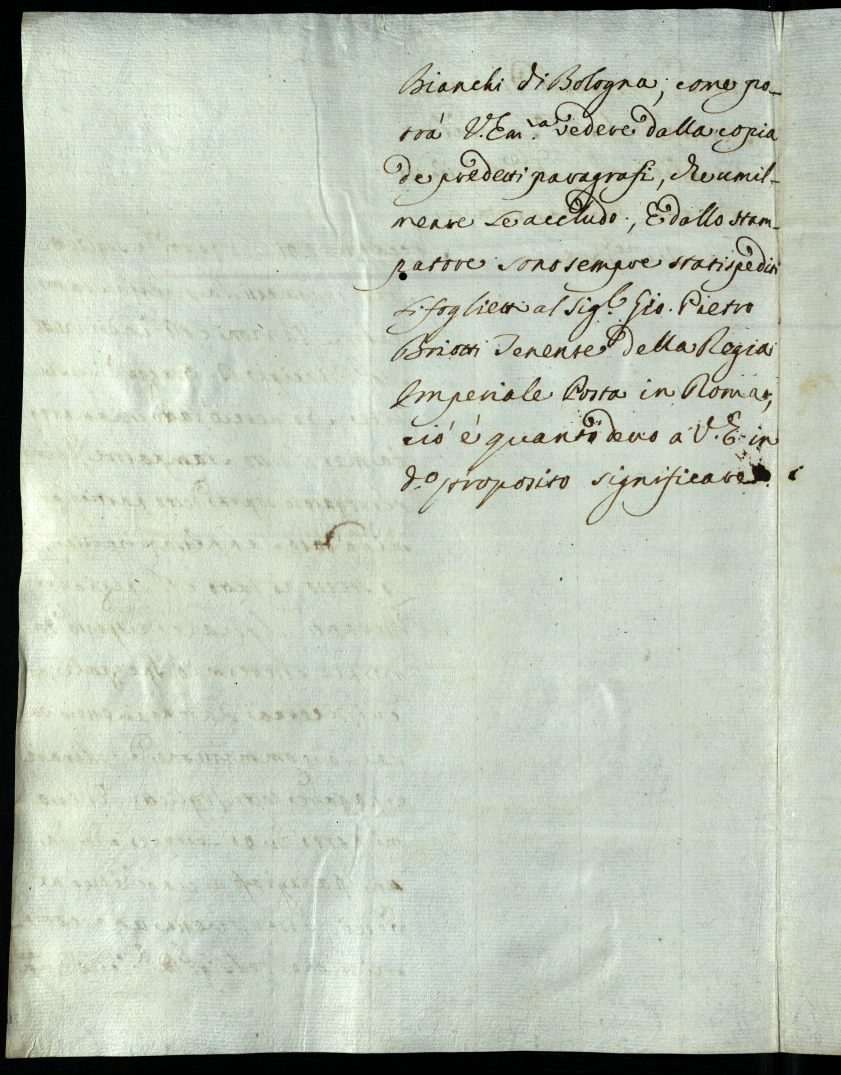 Bianchi di Bologna, come po-
trà V. Em.za vedere dalla copia
de predetti paragrafi, che umil-
mente Le accludo, E dallo stam-
patore sono sempre stati spediti
li foglietti al Sig.r Gio. Pietro
Briotti Tenente della Regia
Imperiale Posta in Roma,
ciò è quanto devo a V. E. in
d.o proposito significare